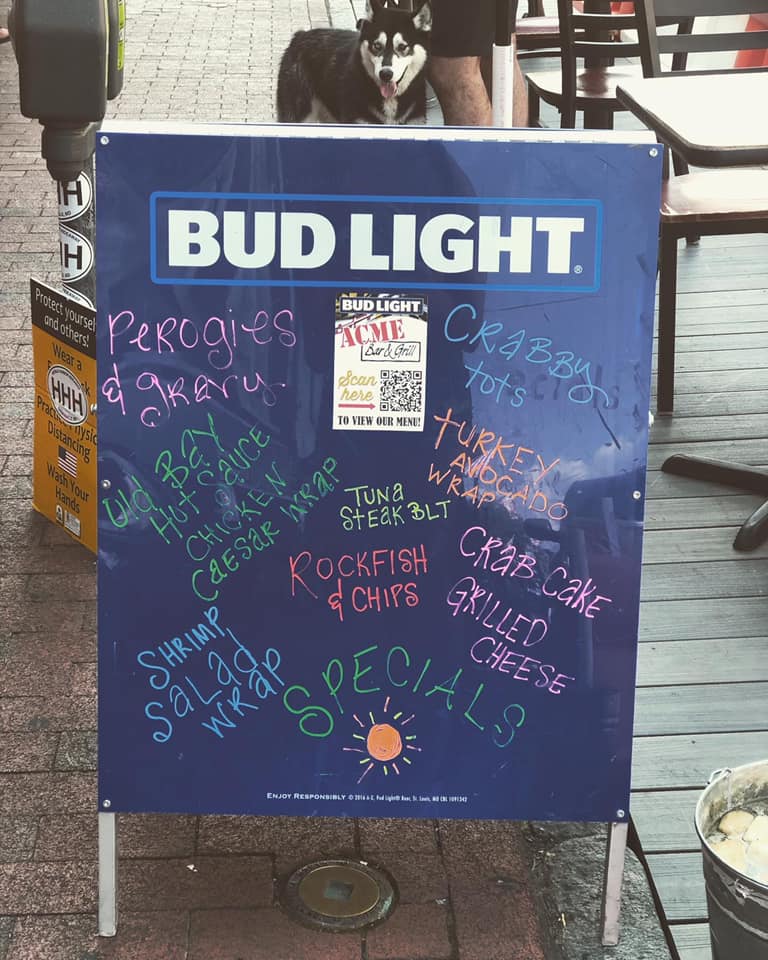 BUD LIGHT
BUD LIGHT
ACME
Bar & Grill
Scan
here
TO VIEW OUR MENU!
PEROGiES
& gRAVY
CRABBY
tOtS
Old BAY
HOT SAUCE
CHICKEN
CAESAR WRAP
TUNa
StEAK BLT
TURKEY
AVOCADO
WRAP
ROCKFISH
& CHIPS
CRAB CAKE
GRILLED
CHEESE
SHRIMP
SALAD
WRAP
SPECIALS
ENJOY RESPONSIBLY © 2016 A-B, Bud Light® Beer, St. Louis, MO
Protect yourself
and others!
Wear a
HHH
Distancing
Wash Your
Hands
H
H